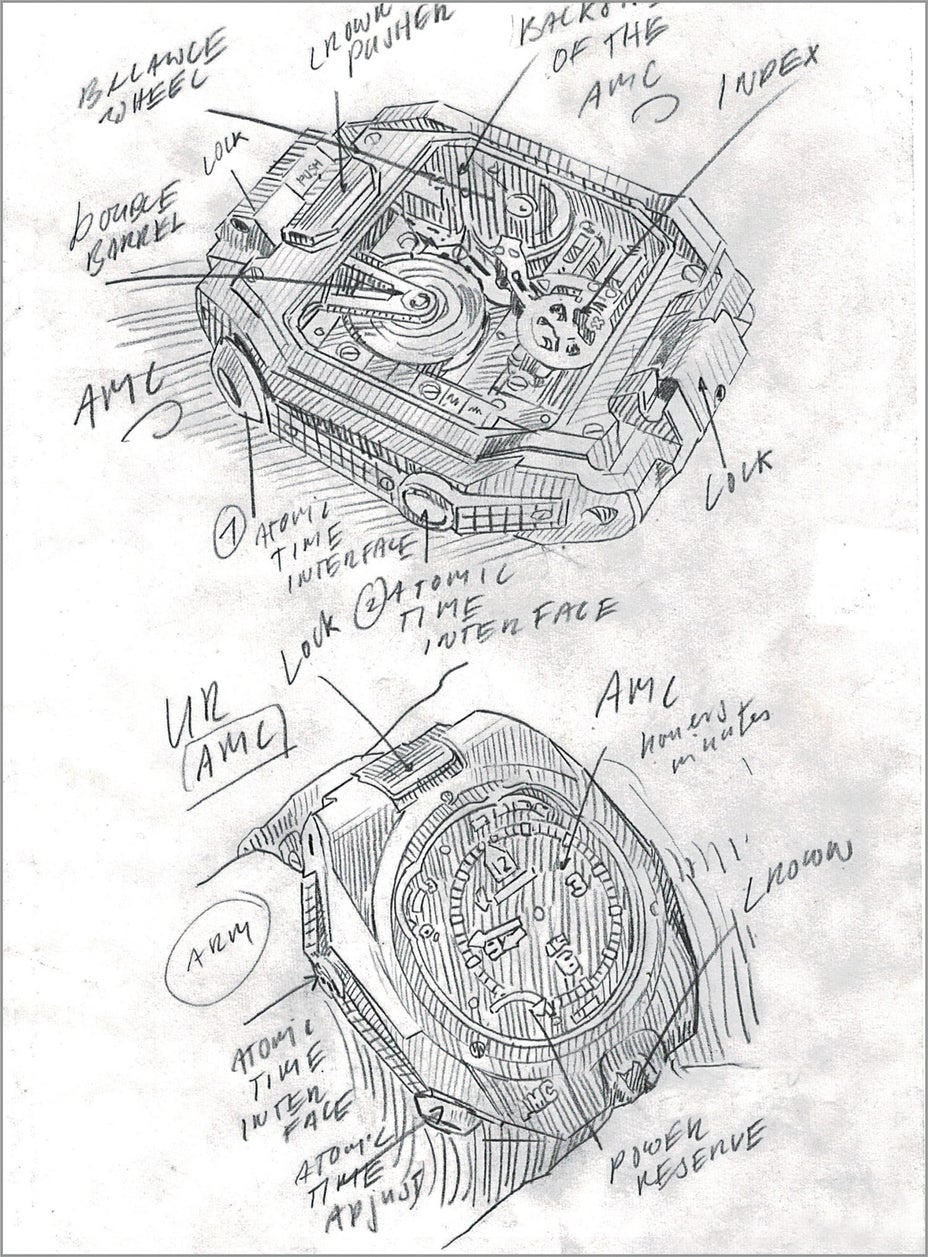 BALANCE
WHEEL
CROWN
PUSHER
OF THE
AMC
INDEX
LOCK
PUSH
DOUBLE
BARREL
AMC
LOCK
1 ATOMIC
TIME
INTERFACE
2 ATOMIC
TIME
INTERFACE
LOCK
UR
AMC
AMC
hours
minutes
12
CROWN
ARM
ATOMIC
TIME
INTER
FACE
ATOMIC
TIME
ADJUST
POWER
RESERVE